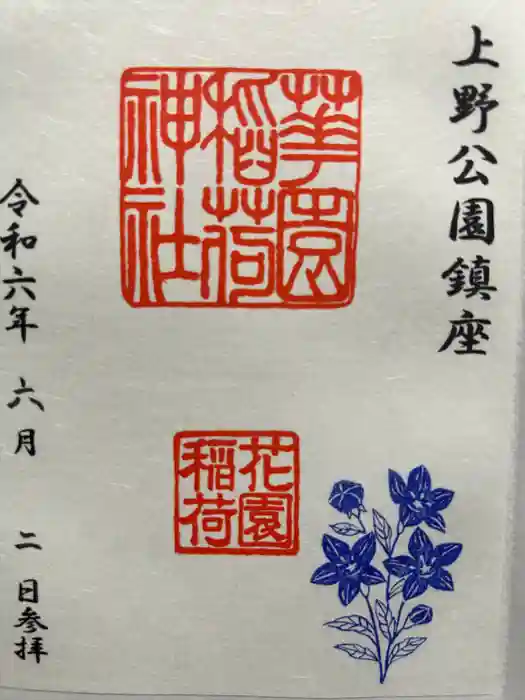 上野公園鎮座
華園稲荷神社
花園稲荷
令和六年 六月 二日参拝